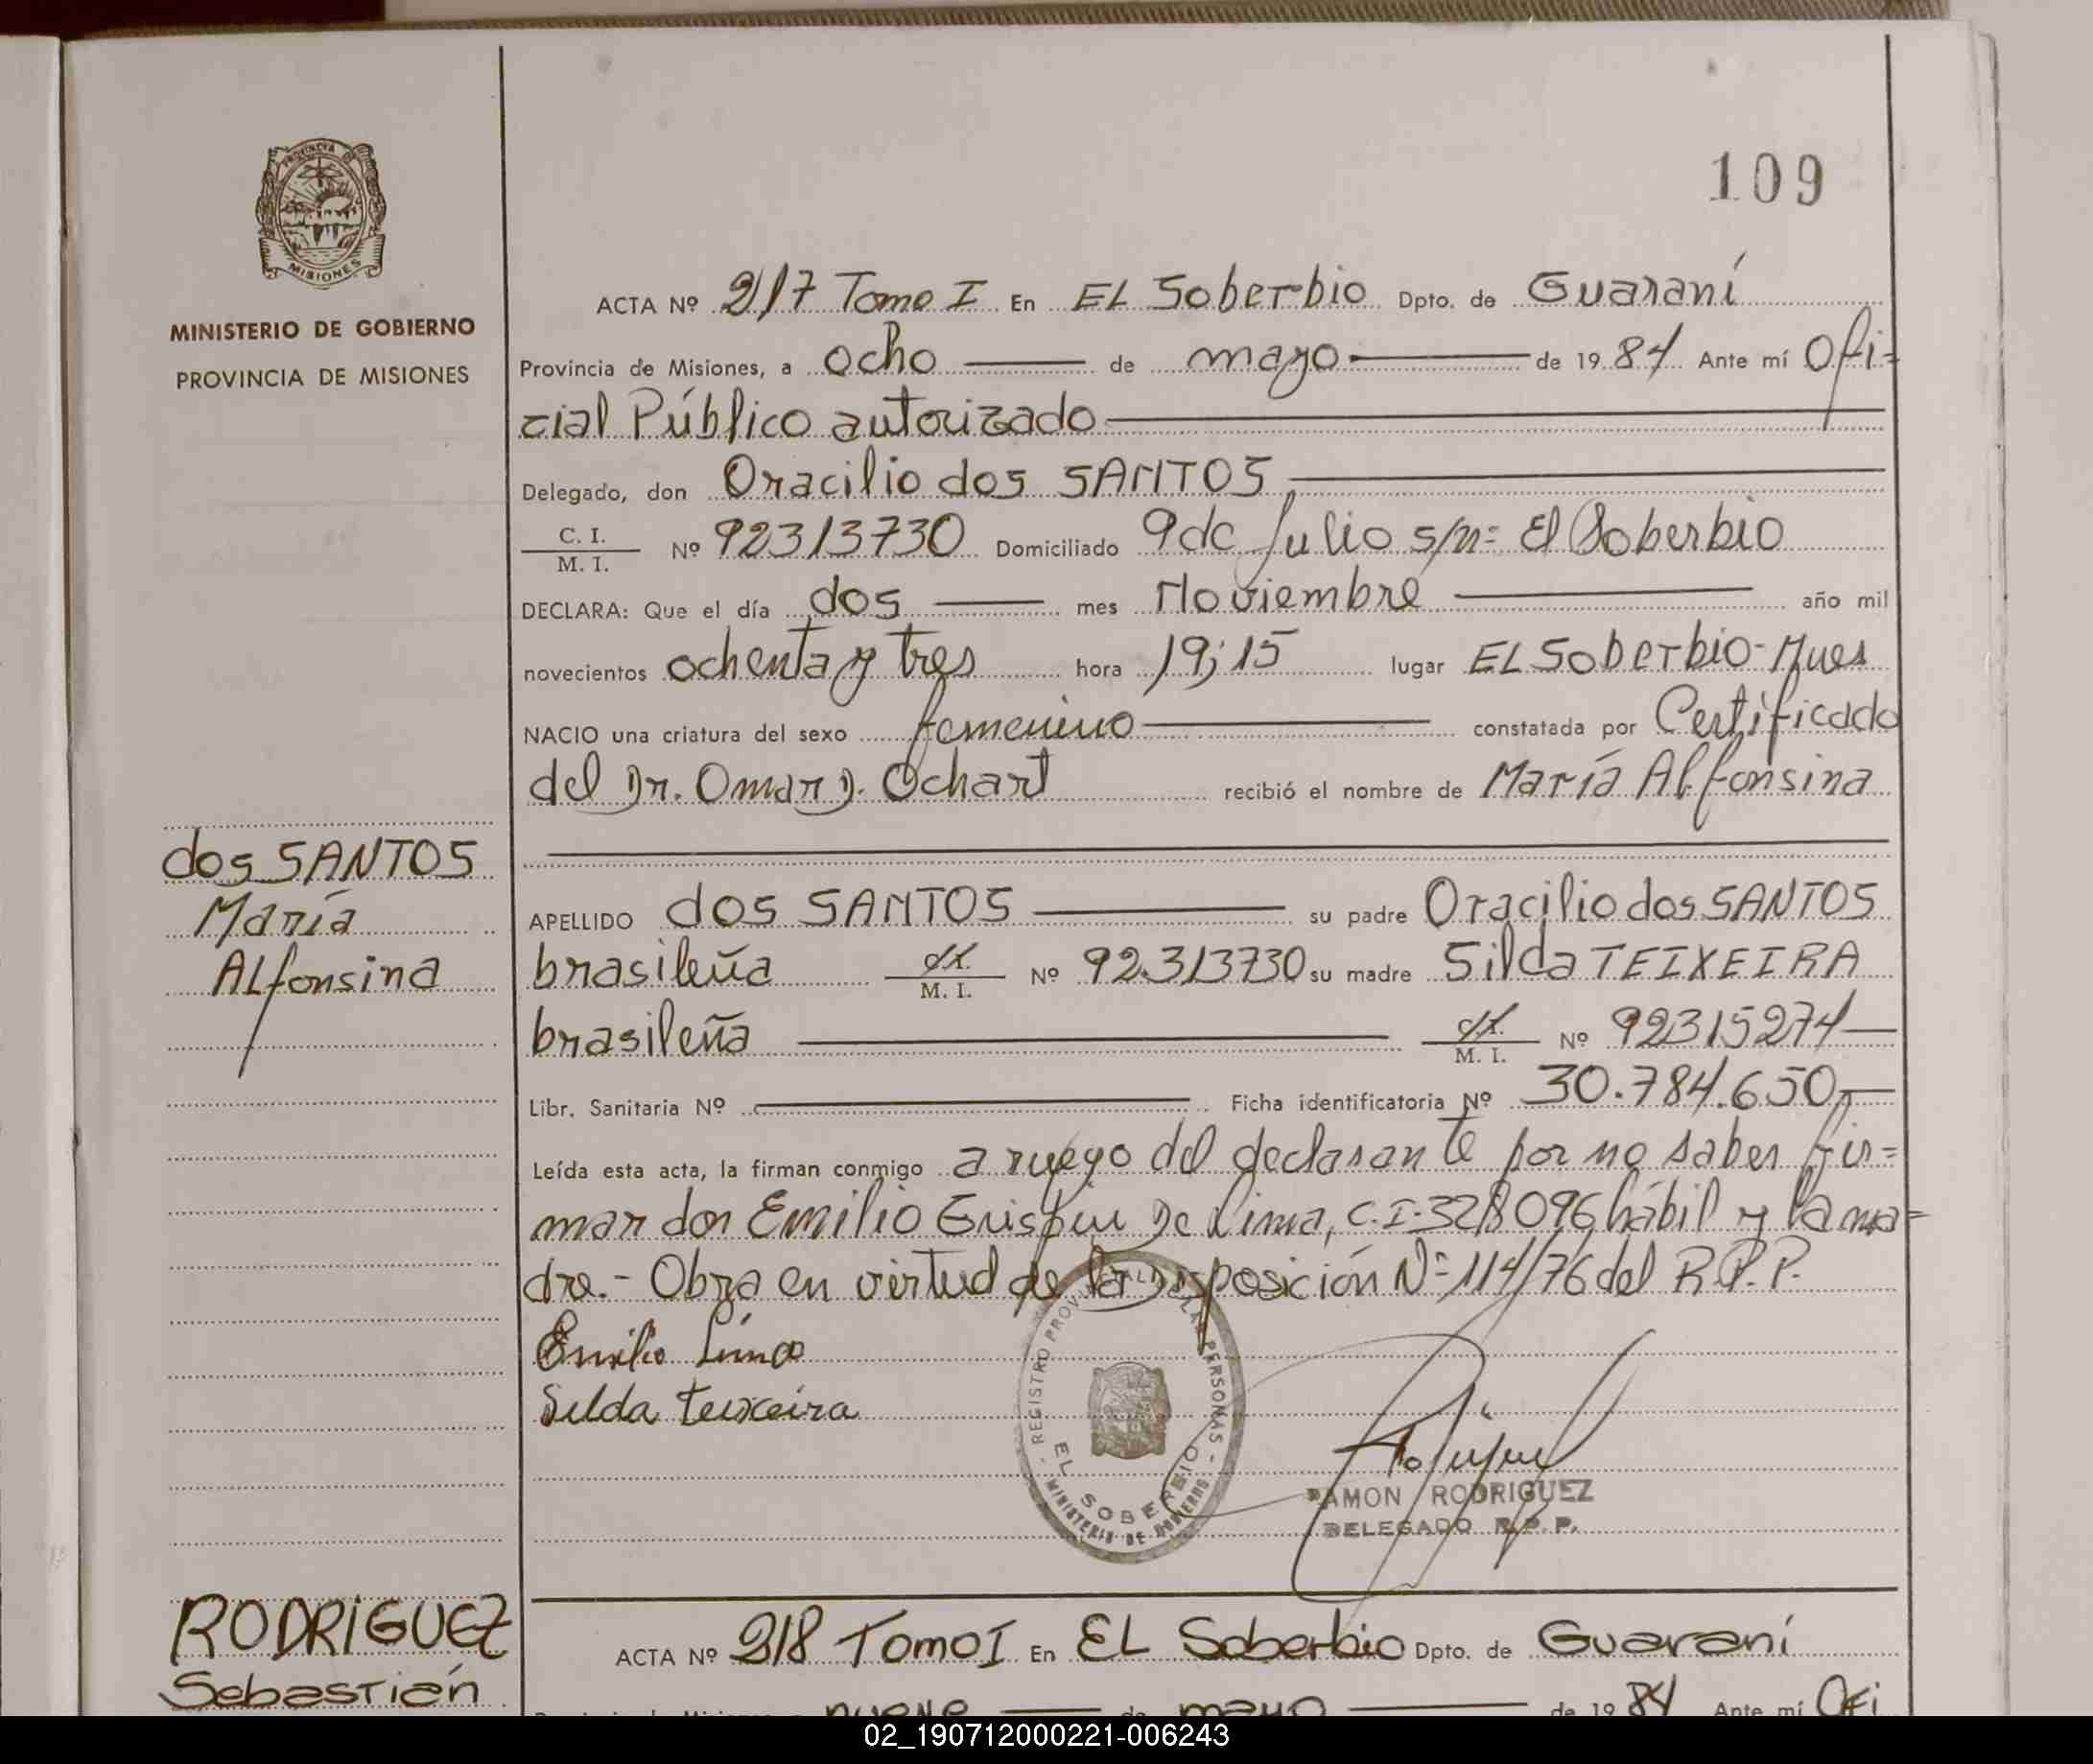 109
PROVINCIA DE
MISIONES
MINISTERIO DE GOBIERNO
PROVINCIA DE MISIONES
ACTA Nº 217 Tomo I En EL Soberbio Dpto. de Guaraní
Provincia de Misiones, a ocho de mayo de 1984 Ante mí Ofi=
cial Público autorizado
Delegado, don Oracilio dos SANTOS
C. I.
M. I. Nº 92313730 Domiciliado 9 de Julio s/n= El Soberbio
DECLARA: Que el día dos mes Noviembre año mil
novecientos ochenta y tres hora 19;15 lugar EL Soberbio-Mnes
NACIO una criatura del sexo femenino constatada por Certificado
del Dr. Omar D. Ochart recibió el nombre de María Alfonsina
dos SANTOS
María
Alfonsina
APELLIDO dos SANTOS su padre Oracilio dos SANTOS
brasileña C.I. M. I. Nº 92.313730 su madre Silda TEIXEIRA
brasileña C.I. M. I. Nº 92315274
Libr. Sanitaria Nº Ficha identificatoria Nº 30.784.650,-
Leída esta acta, la firman conmigo a ruego del declarante por no saber fir=
mar don Emilio De Lima, C.I. 328096 hábil y la ma=
dre.- Obra en virtud de la Disposición Nº 114/76 del R.P.P.
Emilio Lima
Silda Teixeira
REGISTRO PROVINCIAL DE LAS PERSONAS
EL SOBERBIO
MINISTERIO DE GOBIERNO
RAMON RODRIGUEZ
DELEGADO R.P.P.
RODRIGUEZ
Sebastián
ACTA Nº 218 Tomo I En EL Soberbio Dpto. de Guaraní
nueve de mayo de 1984 Ante mí Ofi
02_190712000221-006243